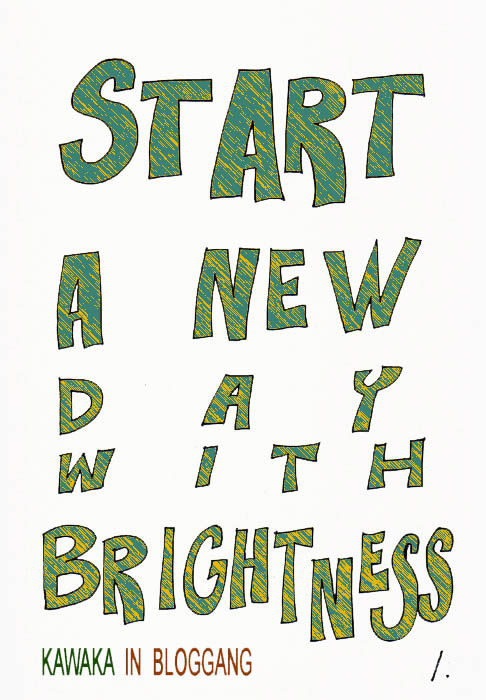 START
A NEW
DAY
WITH
BRIGHTNESS
KAWAKA IN BLOGGANG
1.